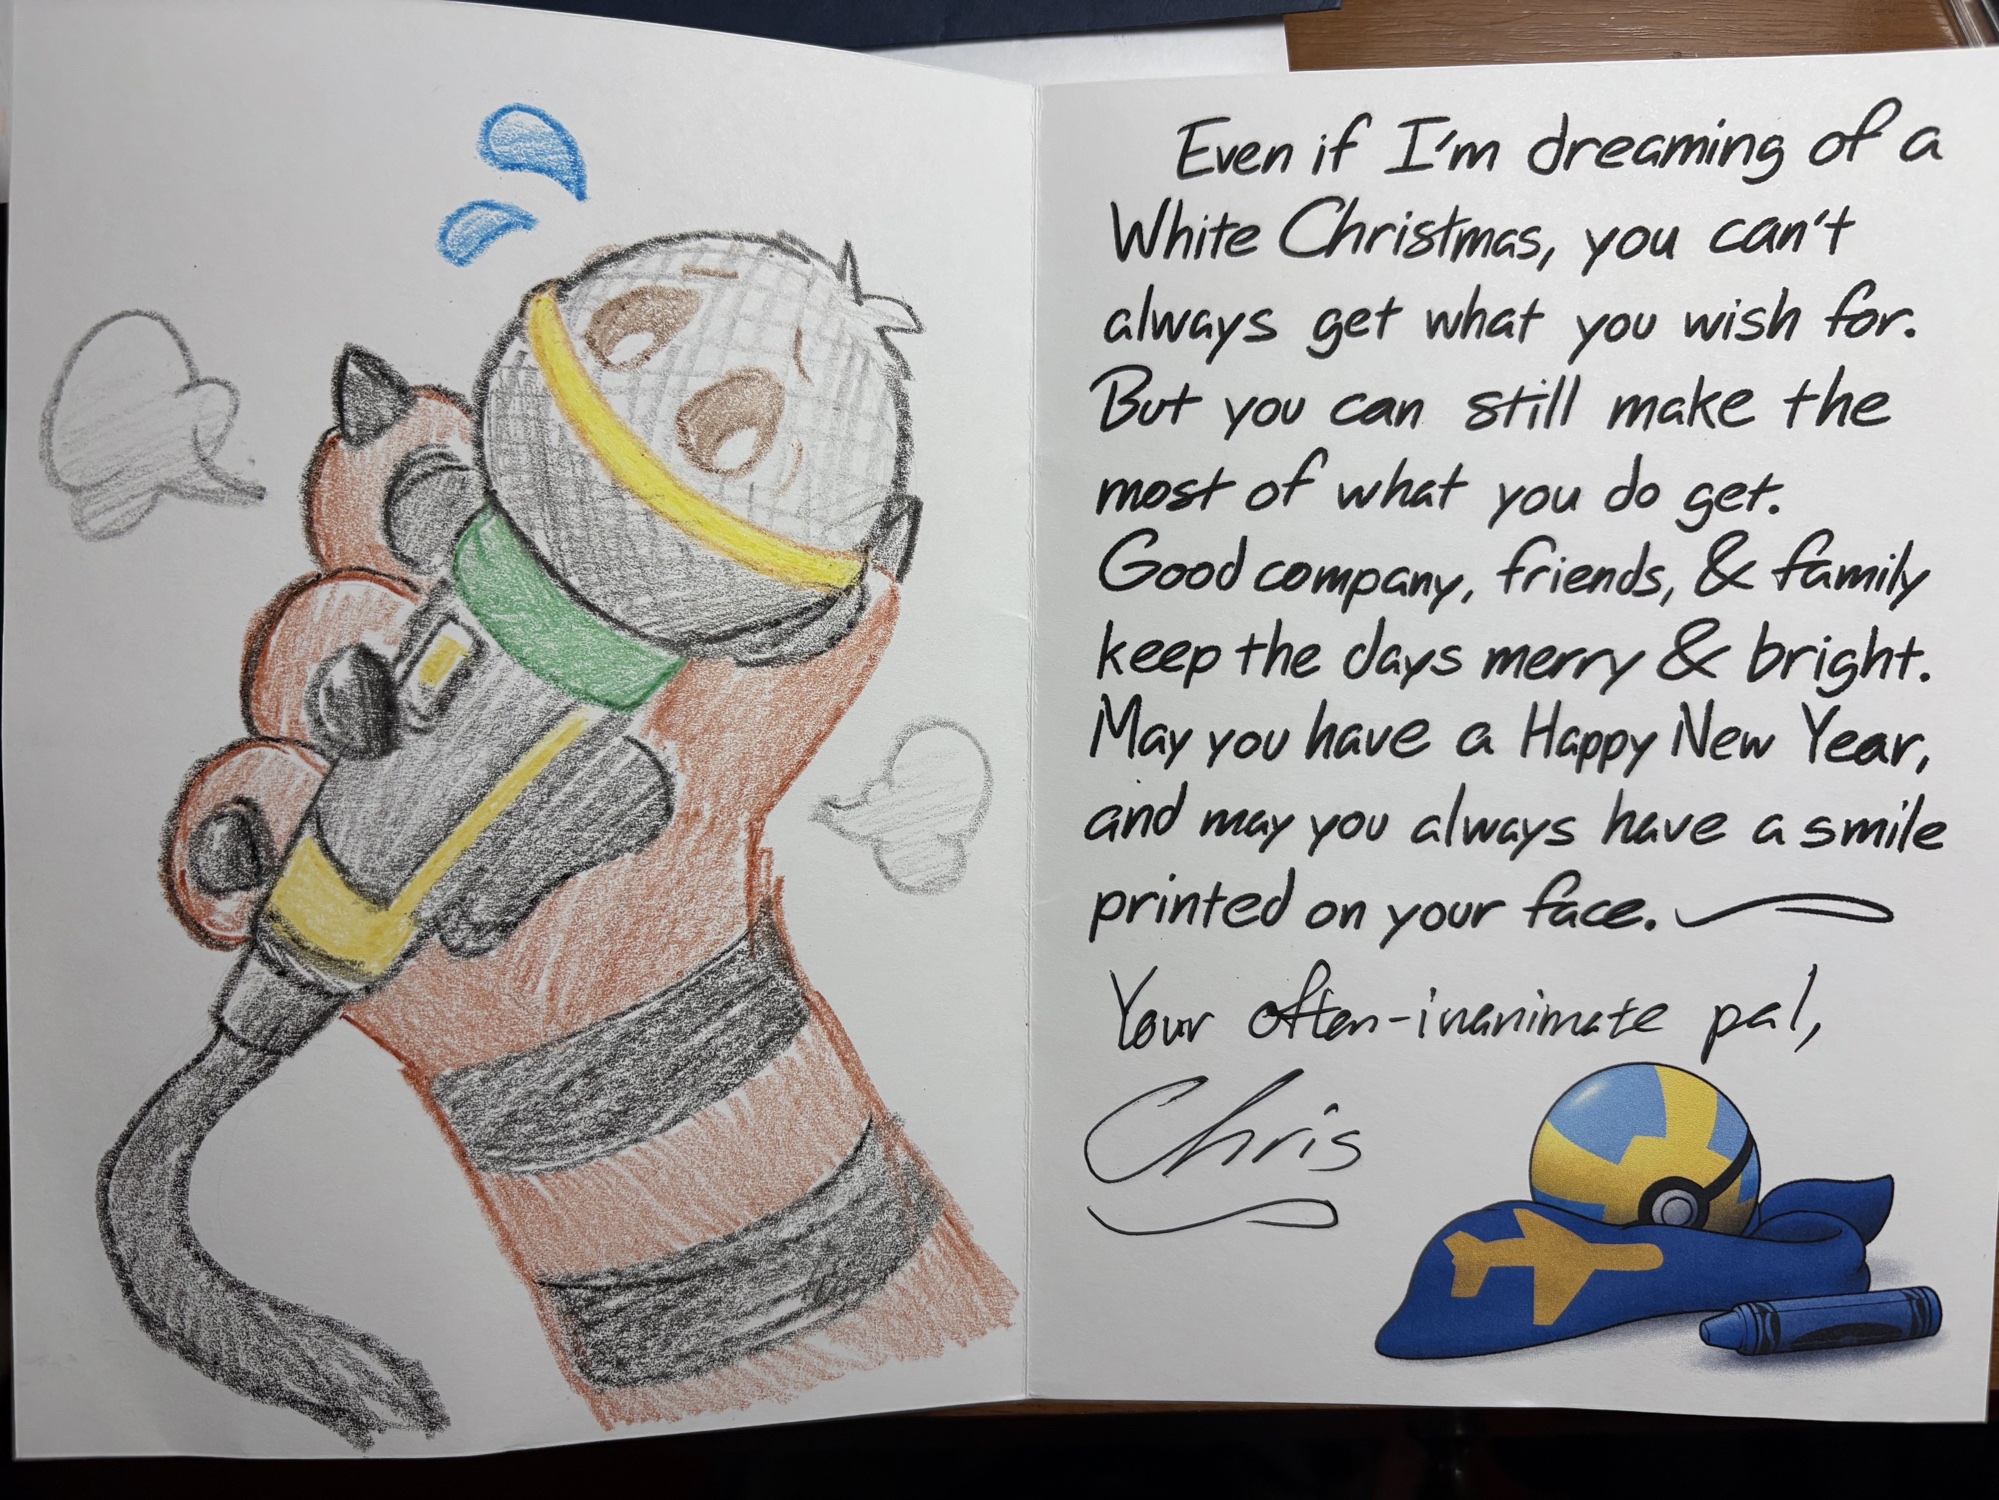 Even if I'm dreaming of a
White Christmas, you can't
always get what you wish for.
But you can still make the
most of what you do get.
Good company, friends, & family
keep the days merry & bright.
May you have a Happy New Year,
and may you always have a smile
printed on your face.
Your often-inanimate pal,
Chris